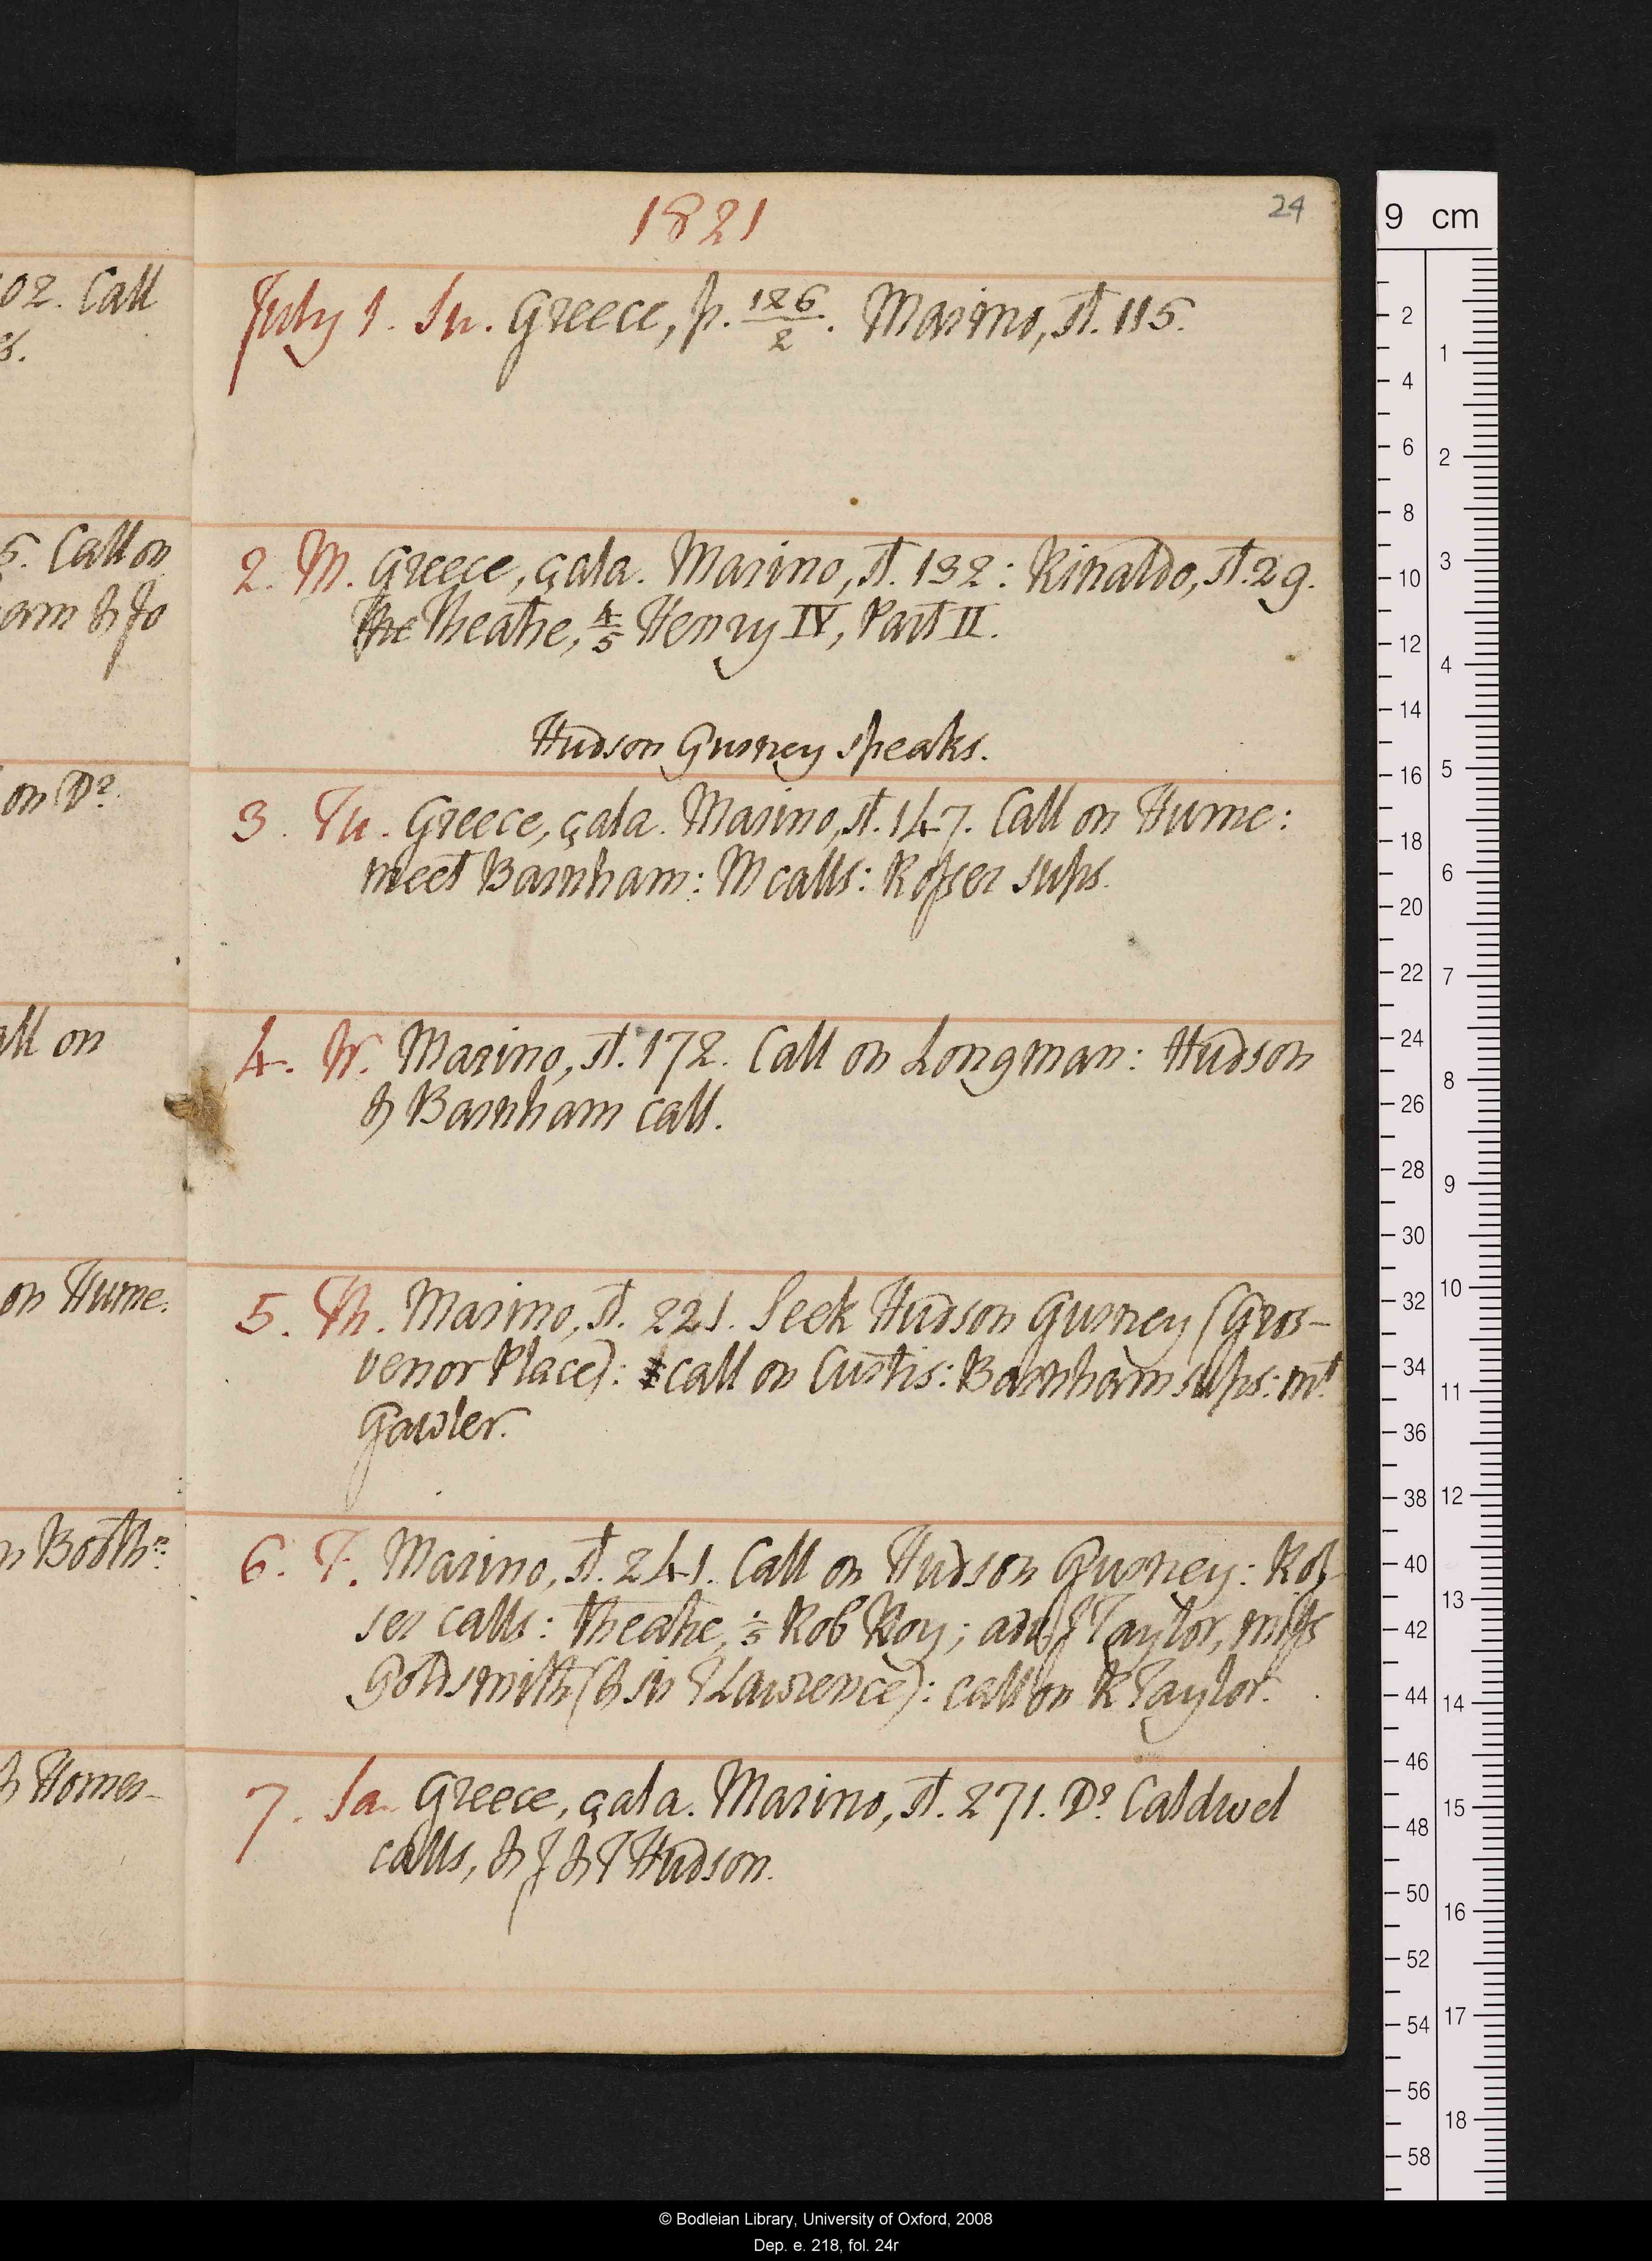 1821
24
02. Call
July 1. Su. Greece, p. 126/2. Marino, st. 115.
5. Call on
2. M. Greece, çala. Marino, st. 132: Rinaldo, st. 29.
The Theatre, 4/5 Henry IV, Part II.
Hudson Gurney speaks.
on Dº.
3. Tu. Greece, çala. Marino, st. 147. Call on Hume:
meet Barnham: M calls: Rosser sups.
all on
4. W. Marino, st. 172. Call on Longman: Hudson
& Barnham call.
on Hume.
5. Th. Marino, st. 221. Seek Hudson Gurney (Gros-
venor Place): call on Curtis: Barnham sups: mt
Gawler.
n Booth
6. F. Marino, st. 241. Call on Hudson Gurney: Ros-
ser calls: theatre, Rob Roy; adv J Taylor, miss
Goldsmith (& sir T Lawrence): call on R Taylor.
& Homer-
7. Sa. Greece, çala. Marino, st. 271. Dr. Caldwel
calls, & J & T Hudson.
9 cm
2
4
6
8
10
12
14
16
18
20
22
24
26
28
30
32
34
36
38
40
42
44
46
48
50
52
54
56
58
1
2
3
4
5
6
7
8
9
10
11
12
13
14
15
16
17
18
© Bodleian Library, University of Oxford, 2008
Dep. e. 218, fol. 24r